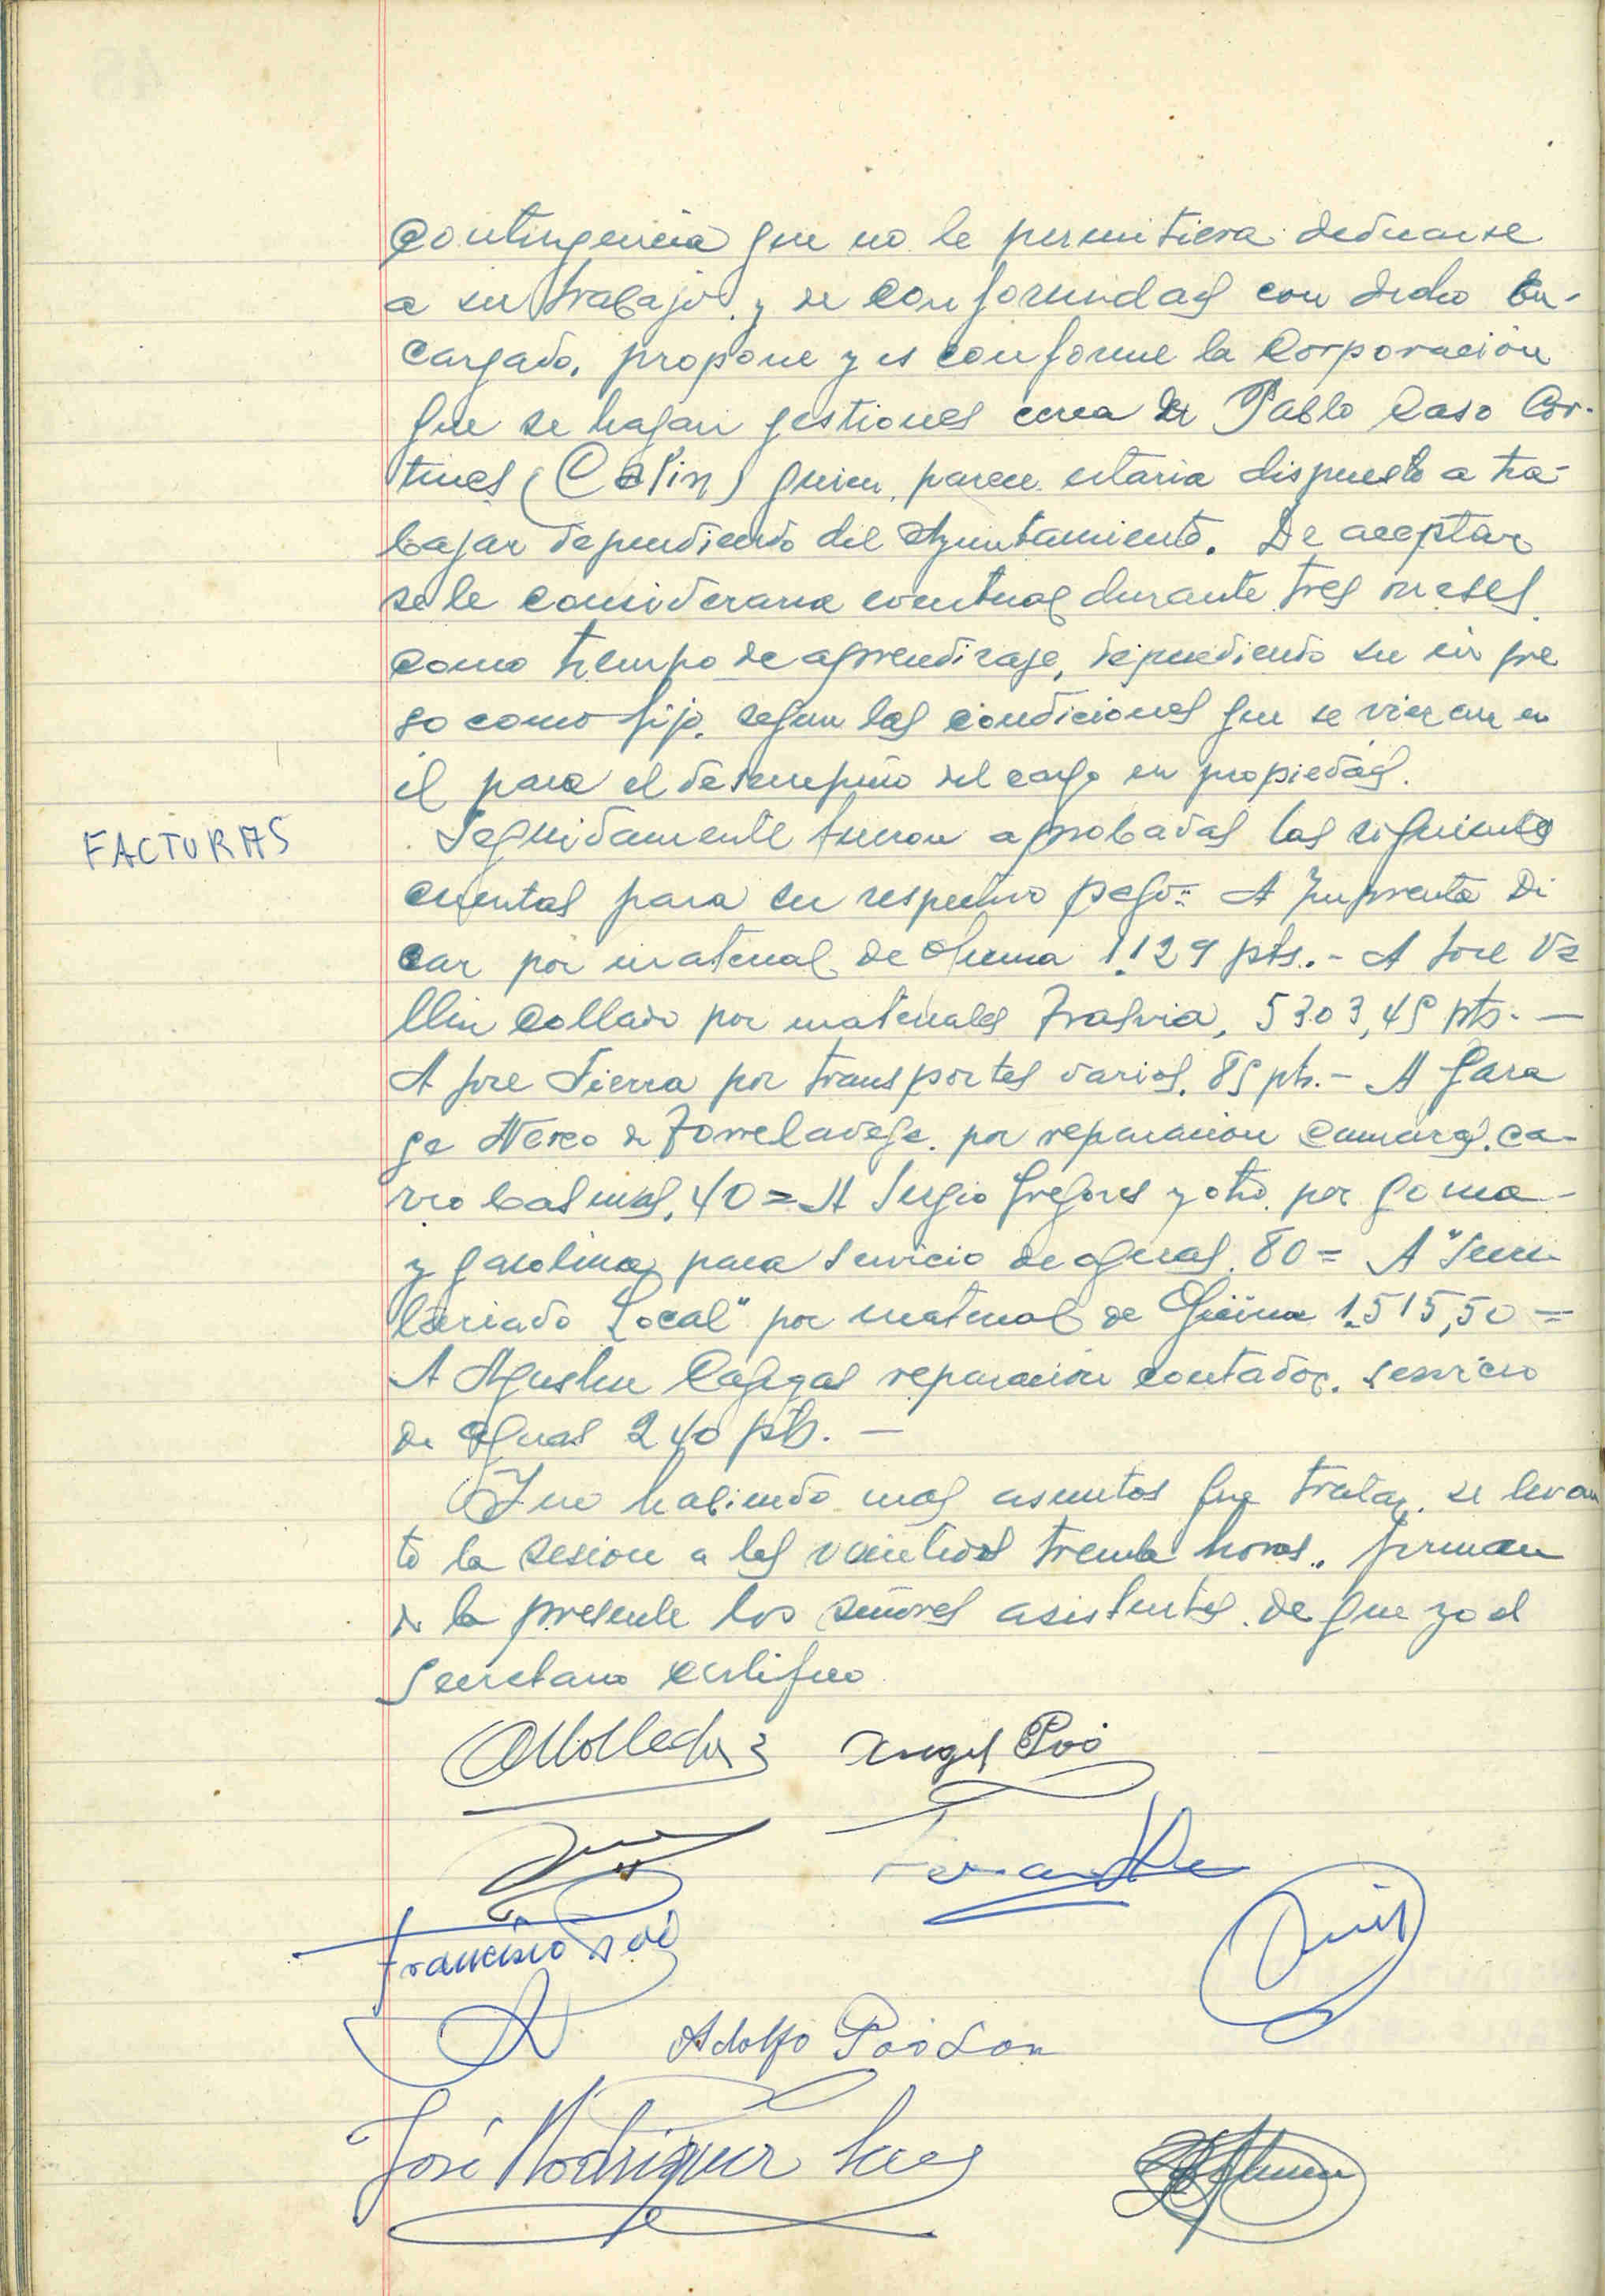 contingencia que no le permitiera dedicarse
a su trabajo y de conformidad con dicho En-
cargado, propone y es conforme la Corporación
que se hagan gestiones cerca de Pablo Caso Cor-
tines (Colin) quien, parece estaria dispuesto a tra-
bajar dependiendo del Ayuntamiento. De aceptar
se le consideraria eventual durante tres meses
como tiempo de aprendizaje, dependiendo su ingre
so como fijo, segun las condiciones que se vieran en
él para el desempeño del cargo en propiedad.
FACTURAS
Seguidamente fueron aprobadas las siguientes
cuentas para su respectivo pago: A Imprenta Di
car por material de oficina 1.129 pts.- A Jose Va
llin Collado por materiales Trasvia, 5303,45 pts.-
A Jose Sierra por transportes varios, 85 pts.- A Gara
ge Nereo de Torrelavega por reparacion camaras, ca-
rro basuras, 40= A Sergio Gregores y otro por goma
y gasolina para servicio de aguas, 80= A "Secre
tariado Local" por material de Oficina 1.515,50=
A Agustin Cagigas reparación contador, servicio
de aguas 240 pts.-
Y no habiendo mas asuntos que tratar, se levan
tó la sesion a las veintidos treinta horas, firman
de la presente los señores asistentes de que yo el
Secretario certifico
Angel Poó
Francisco Poó
Adolfo Poó
José Rodriguez